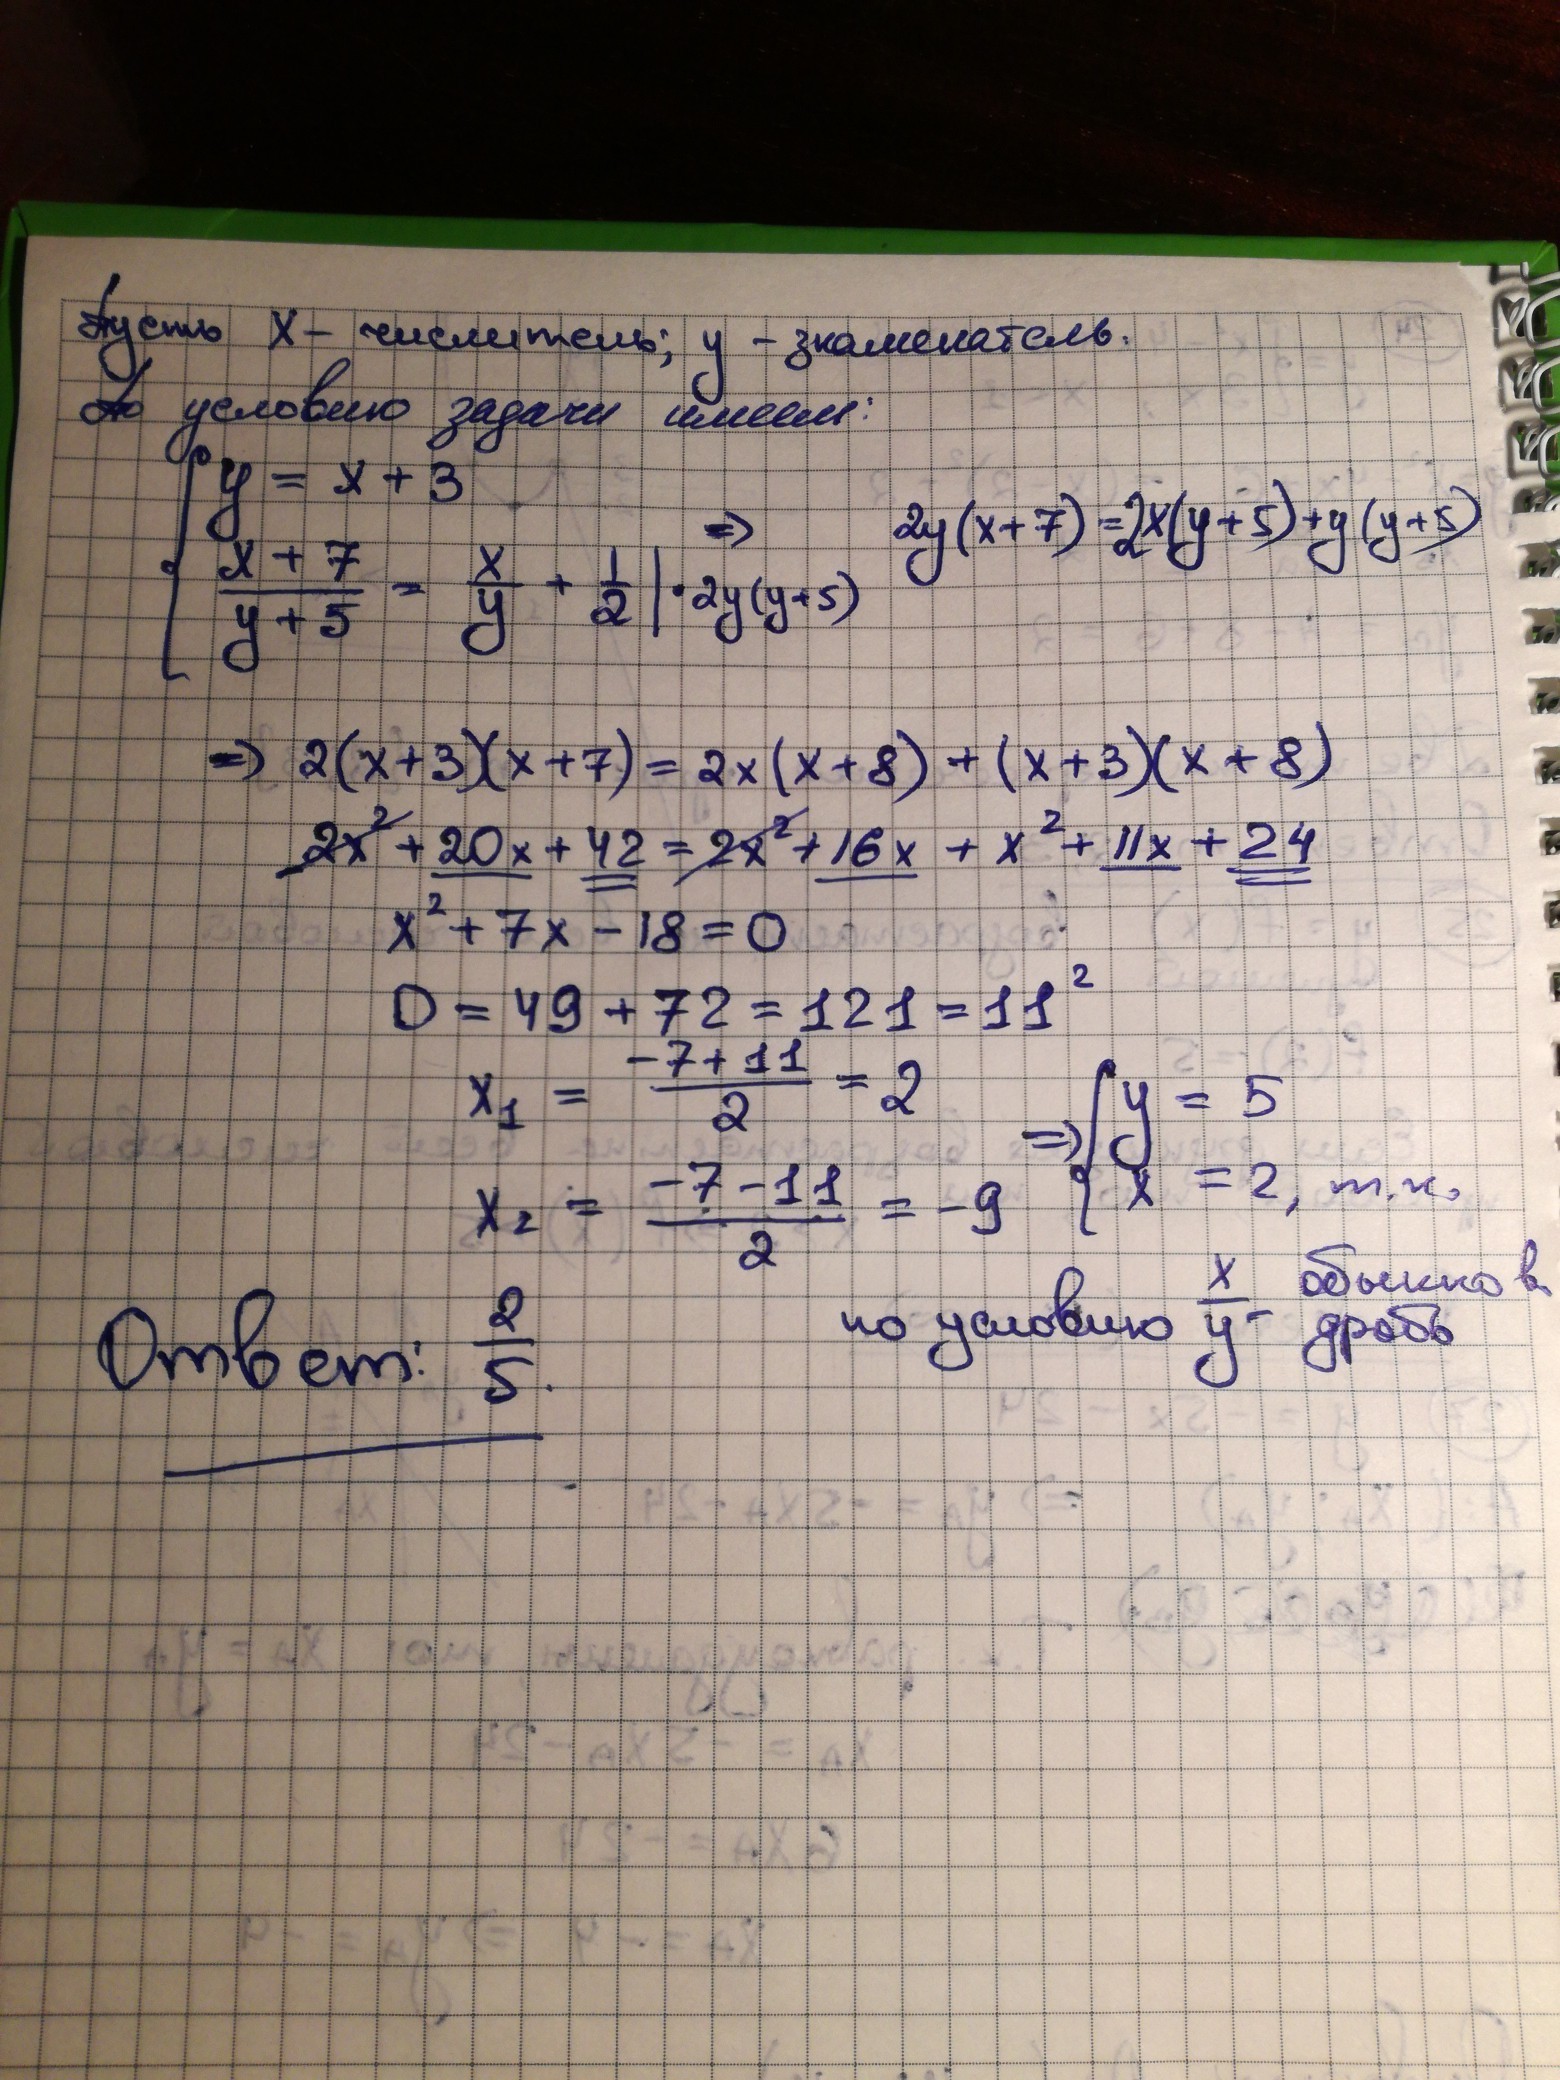 Пусть x – числитель; y – знаменатель.
По условию задачи имеем:
{ y = x + 3
(x + 7)/(y + 5) = x/y + 1/2 | · 2y(y+5) => 2y(x+7) = 2x(y+5) + y(y+5)
=> 2(x+3)(x+7) = 2x(x+8) + (x+3)(x+8)
2x² + 20x + 42 = 2x² + 16x + x² + 11x + 24
x² + 7x – 18 = 0
D = 49 + 72 = 121 = 11²
x₁ = (-7+11)/2 = 2
x₂ = (-7-11)/2 = -9
=> { y = 5
x = 2, т.к.
по условию x/y – обыкнов.
дробь
Ответ: 2/5.